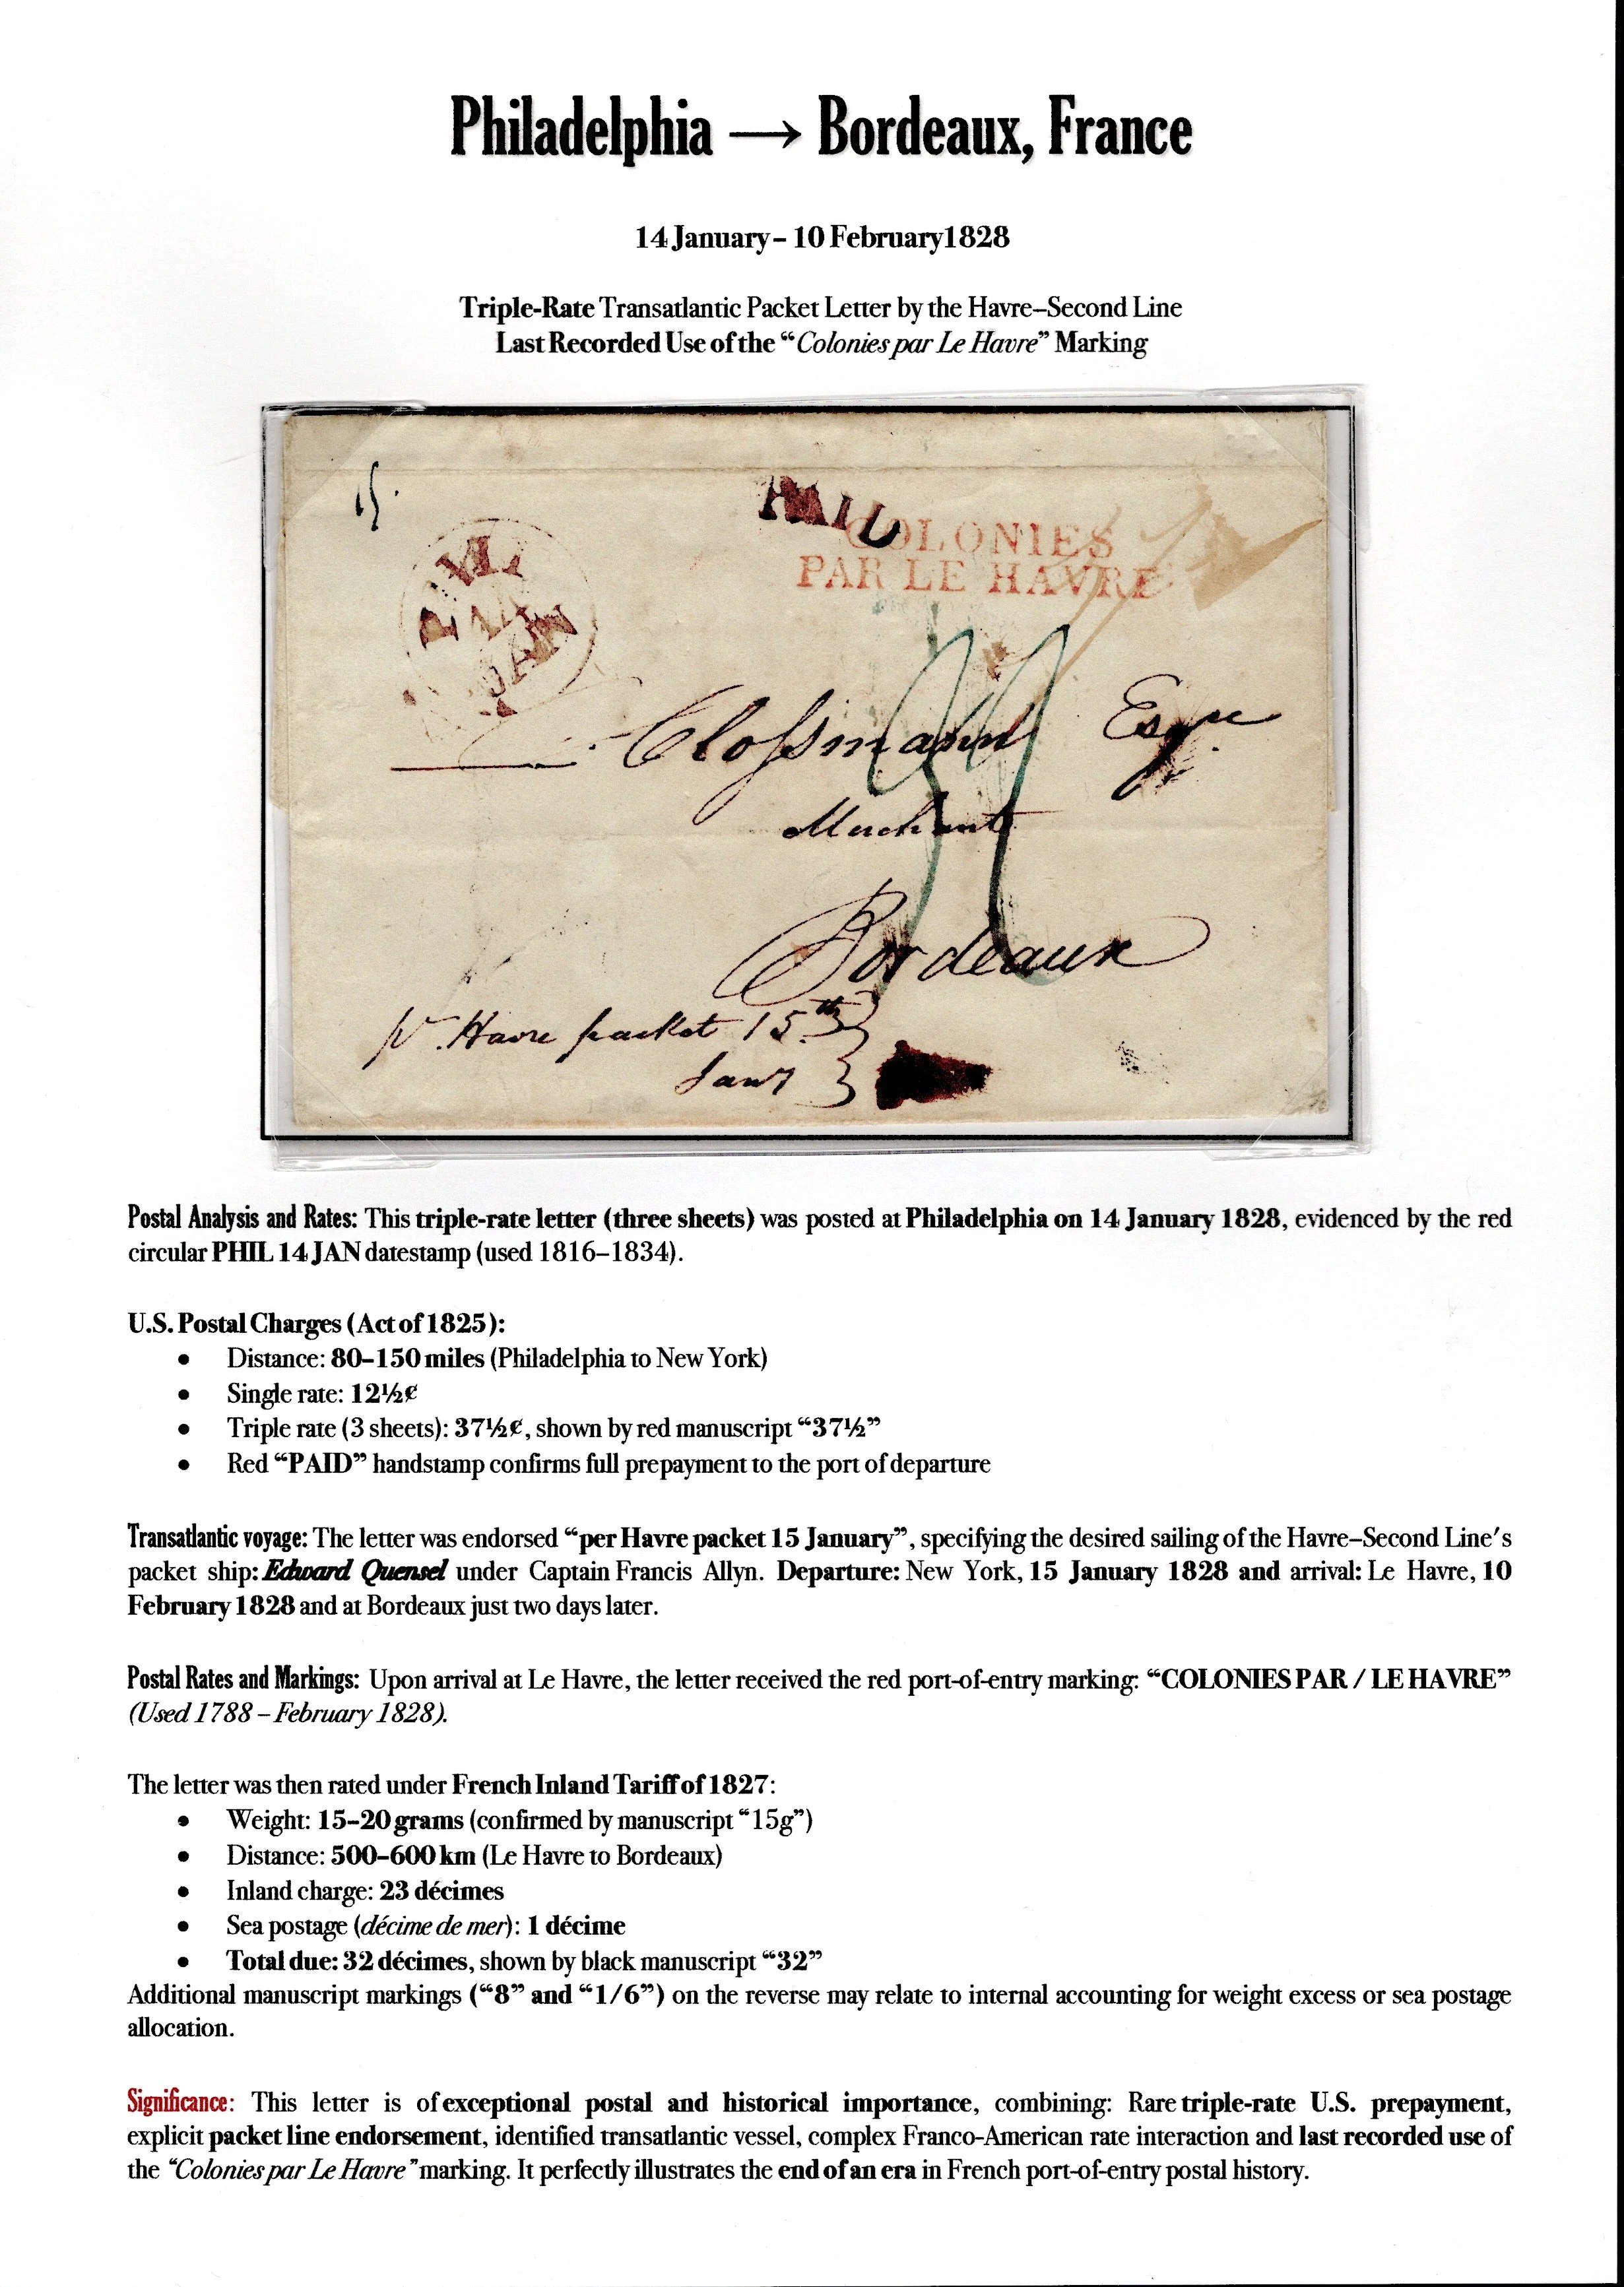 Philadelphia → Bordeaux, France
14 January – 10 February1828
Triple-Rate Transatlantic Packet Letter by the Havre–Second Line
Last Recorded Use of the “Colonies par Le Havre” Marking
15
PAID
COLONIES
PAR LE HAVRE
PHIL
14
JAN
Clossmann Esqre
Merchant
Bordeaux
pr Havre packet 15th
Jany
Postal Analysis and Rates: This triple-rate letter (three sheets) was posted at Philadelphia on 14 January 1828, evidenced by the red
circular PHIL 14 JAN datestamp (used 1816–1834).
U.S. Postal Charges (Act of 1825):
• Distance: 80–150 miles (Philadelphia to New York)
• Single rate: 12½¢
• Triple rate (3 sheets): 37½¢, shown by red manuscript “37½”
• Red “PAID” handstamp confirms full prepayment to the port of departure
Transatlantic voyage: The letter was endorsed “per Havre packet 15 January”, specifying the desired sailing of the Havre–Second Line's
packet ship: Edward Quensel under Captain Francis Allyn. Departure: New York, 15 January 1828 and arrival: Le Havre, 10
February 1828 and at Bordeaux just two days later.
Postal Rates and Markings: Upon arrival at Le Havre, the letter received the red port-of-entry marking: “COLONIES PAR / LE HAVRE”
(Used 1788 – February 1828).
The letter was then rated under French Inland Tariff of 1827:
• Weight: 15–20 grams (confirmed by manuscript “15g”)
• Distance: 500–600 km (Le Havre to Bordeaux)
• Inland charge: 23 décimes
• Sea postage (décime de mer): 1 décime
• Total due: 32 décimes, shown by black manuscript “32”
Additional manuscript markings (“8” and “1/6”) on the reverse may relate to internal accounting for weight excess or sea postage
allocation.
Significance: This letter is of exceptional postal and historical importance, combining: Rare triple-rate U.S. prepayment,
explicit packet line endorsement, identified transatlantic vessel, complex Franco-American rate interaction and last recorded use of
the “Colonies par Le Havre” marking. It perfectly illustrates the end of an era in French port-of-entry postal history.